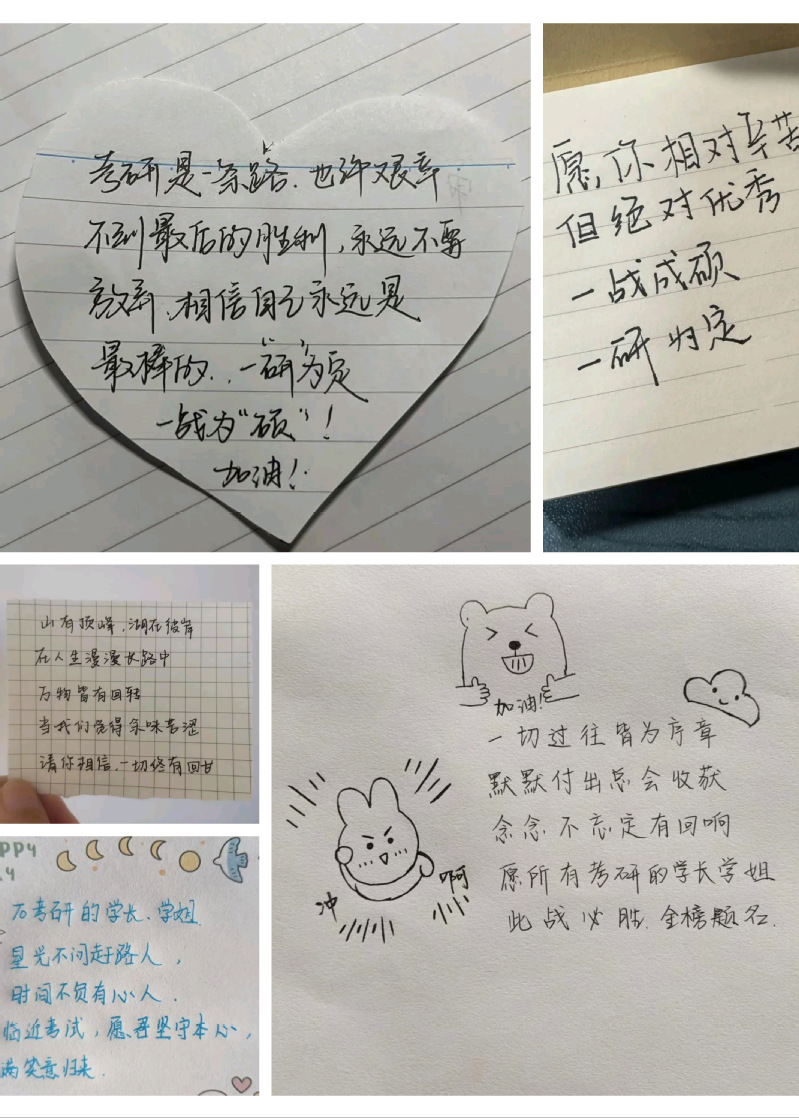 考研是一条路.也许艰辛
不到最后的胜利,永远不要
放弃.相信自己永远是
最棒的..一“研”为定
一战为“硕”!
加油!
愿,你相对辛苦
但绝对优秀
一战成硕
一研为定
山有顶峰,湖在彼岸
在人生漫漫长路中
万物皆有回转
当我们觉得余味苦涩
请你相信,一切终有回甘
PPY
.4
万考研的学长.学姐
星光不问赶路人,
时间不负有心人.
临近考试,愿君坚守本心,
满笑意归来.
加油!
一切过往皆为序章
默默付出总会收获
念念不忘定有回响
愿所有考研的学长学姐
此战必胜.金榜题名.
冲
啊